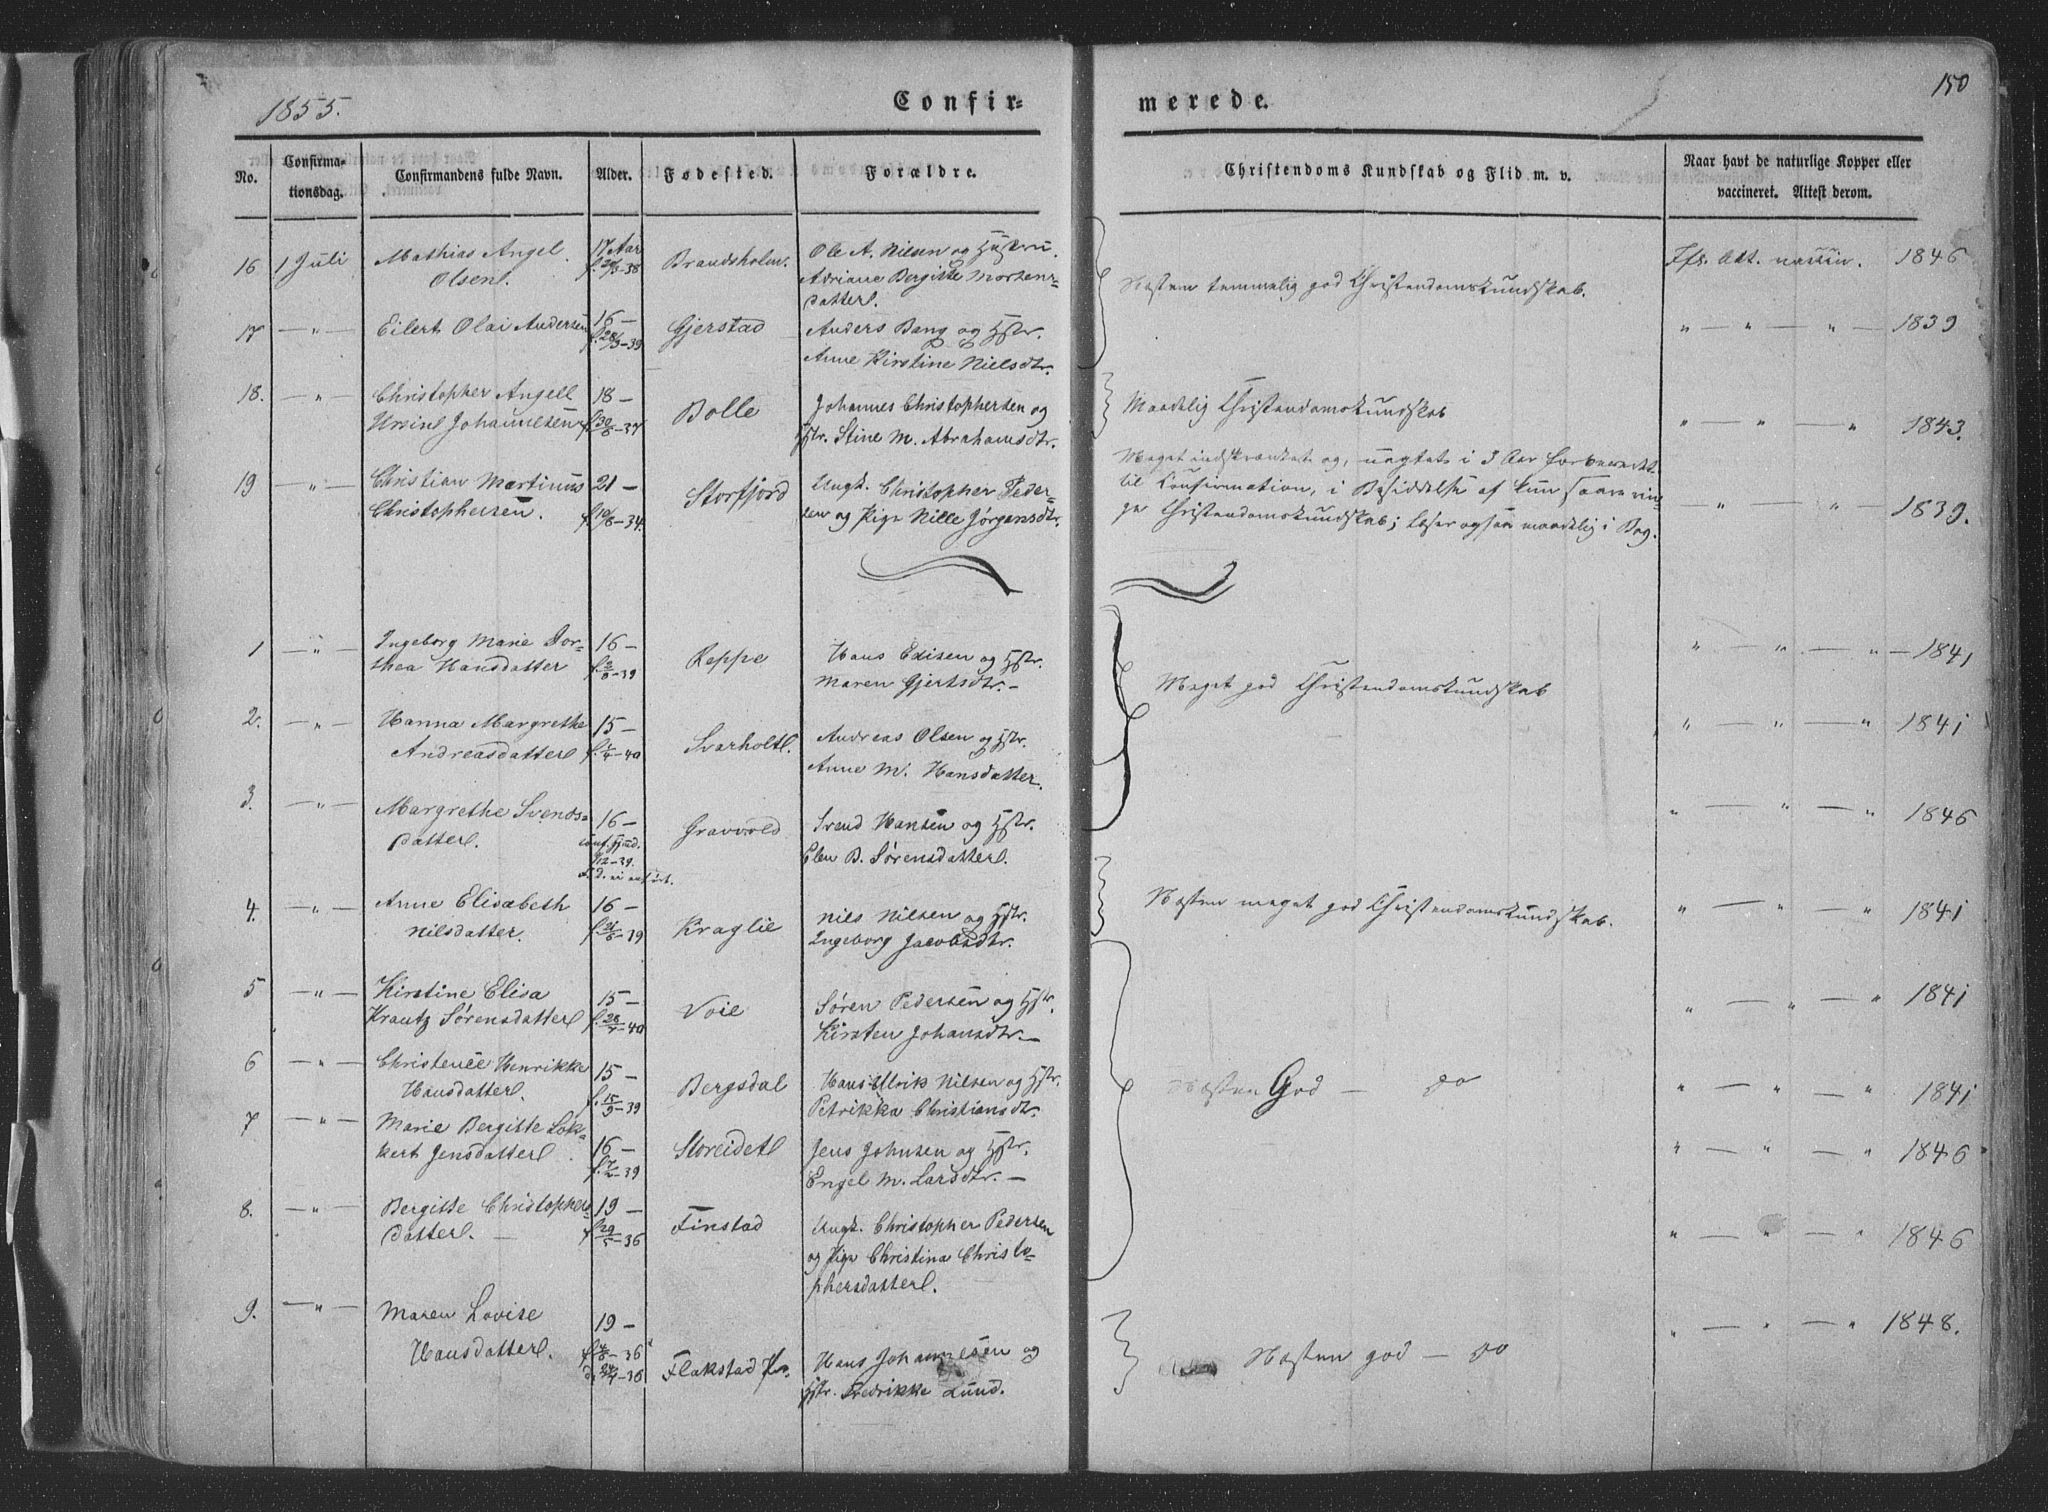 1855.
Confir-
merede.
150
No.
Confirma-
tionsdag.
Confirmandens fulde Navn.
Alder.
Fødested.
Forældre.
Christendoms Kundskab og Flid m. v.
Naar havt de naturlige Kopper eller
vaccineret. Attest derom.
16 1 Juli Mathias Angel
Olsen.
17 Aar
Brandsholm.
Ole A. Nilsen og Hustru
Adriane Bergitte Mortens-
datter.
Næsten temmelig god Christendomskundskab.
Ifl. Att. vaccin. 1846
17 — „ — Eilert Olai Andersen
16 —
f. 28/3-39
Gjerstad
Anders Bang og Hstr.
Anne Kirstine Nielsdtr.
„ — „ — „ — 1839
18. — „ Christopher Angell
Ursin Johannesen
18 —
f. 30/6-37
Bolle
Johannes Christophersen og
Hstr. Stine M. Abrahamsdtr.
Maadelig Christendomskundskab
„ — „ — „ 1843.
19 — „ — Christian Martinus
Christophersen.
21 —
f. 10/8-34.
Storfjord
Ungk. Christopher Peder-
sen og Pige Nille Jørgensdtr.
Meget indskrænket og, uagtet i 3 Aar forberedt
til Confirmation, i Besiddelse af kun saare rin-
ge Christendomskundskab; læser ogsaa maadelig i Bog.
— „ — „ — 1839.
1 — „ — Ingeborg Marie Dor-
thea Hansdatter
16 —
Reppe
Hans Edisen og Hstr.
Maren Gjertsdtr. —
Meget god Christendomskundskab
„ — „ — „ — 1841
2. — „ — Hanna Margrethe
Andreasdatter
15 —
f. 1/4-40
Svarholtl.
Andreas Olsen og Hstr.
Anne M. Hansdatter.
„ — „ — „ 1841
3. — „ — Margrethe Svends-
datter.
16 —
Gravvold
Svend Hansen og Hstr.
Elen B. Sørensdatter.
„ — „ — „ 1846
4. — „ — Anne Elisabeth
Nilsdatter.
16 —
Kraglie
Nils Nilsen og Hstr.
Ingeborg Jacobsdtr.
Næsten meget god Christendomskundskab.
„ — „ — „ 1841
5 — „ — Kirstine Elisa
Krantz Sørensdatter
15 —
Voie
Søren Pedersen og Hstr.
Kirsten Johansdtr. —
„ — „ — „ 1841
6 — „ — Christence Henrikke
Hansdatter.
15 —
f. 15/9-39
Bergsdal
Hans Ulrik Nilsen og Hstr.
Petrikka Christiansdtr.
Næsten God — do
„ — „ „ 1841
7 — „ — Marie Bergitte Lok-
kert Jensdatter
16 —
f. 7/2-39
Storeidet
Jens Johnsen og Hstr.
Engel M. Larsdtr. —
„ — „ — „ 1846
8. — „ — Bergitte Christophers-
datter. —
19 —
f. 29/5-36
Finstad
Ungk. Christopher Pedersen
og Pige Christina Christo-
phersdatter.
„ — „ — „ 1846
9. — „ — Maren Lovise
Hansdatter.
19 —
Flakstad
Hans Johannesen og
Hstr. Fredrikke Lund.
Næsten god — do
„ — „ — „ 1848.